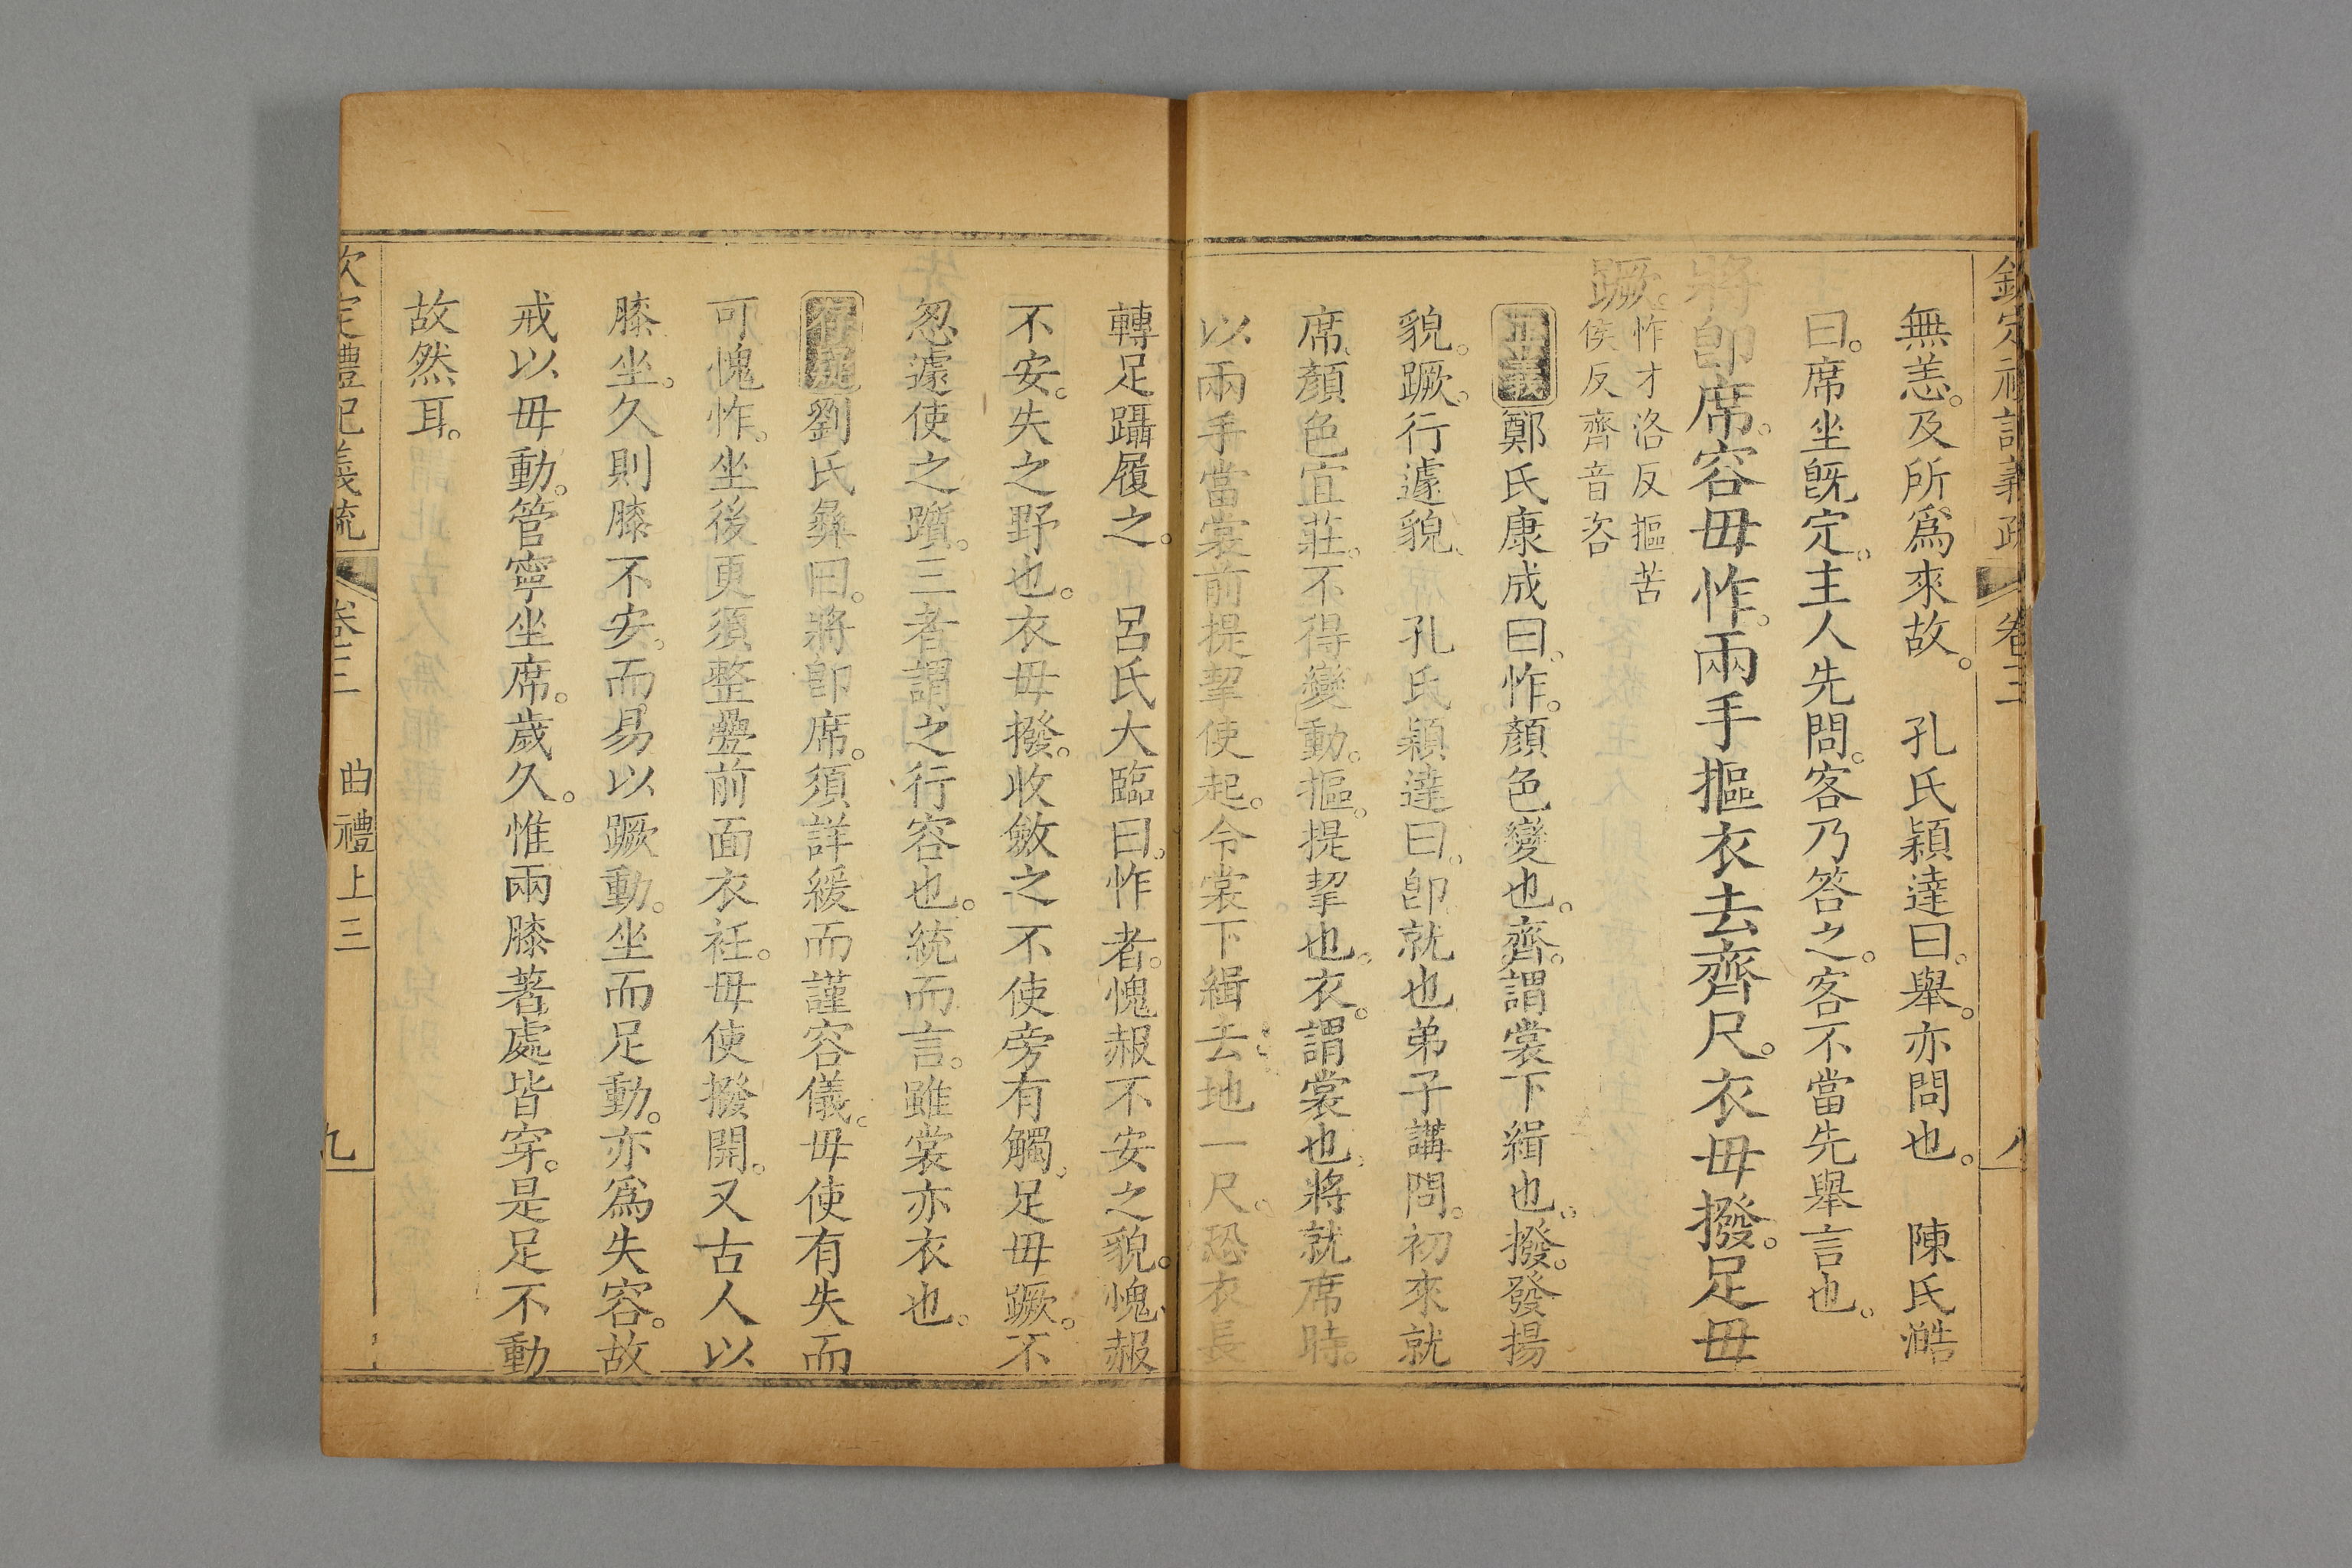 欽定禮記義疏 卷三 八
無恙。及所為來故。 孔氏穎達曰。舉。亦問也。 陳氏澔
曰。席坐旣定。主人先問。客乃答之。客不當先舉言也。
將卽席。容毋怍。兩手摳衣去齊尺。衣毋撥。足毋
蹶。怍才洛反摳苦
侯反齊音咨
正義鄭氏康成曰。怍。顏色變也。齊。謂裳下緝也。撥。發揚
貌。蹶。行遽貌。 孔氏穎達曰。卽。就也。弟子講問。初來就
席。顏色宜莊。不得變動。摳。提挈也。衣。謂裳也。將就席時。
以兩手當裳前提挈使起。令裳下緝去地一尺。恐衣長
轉足躡履之。 呂氏大臨曰。怍者。愧赧不安之貌。愧赧
不安。失之野也。衣毋撥。收斂之不使旁有觸。足毋蹶。不
忽遽使之躓。三者謂之行容也。統而言。雖裳亦衣也。
存疑劉氏彝曰。將卽席。須詳緩而謹容儀。毋使有失而
可愧怍。坐後更須整疊前面衣衽。毋使撥開。又古人以
膝坐。久則膝不安。而易以蹶動。坐而足動。亦為失容。故
戒以毋動。管寧坐席。歲久。惟兩膝著處皆穿。是足不動
故然耳。
欽定禮記義疏 卷三 曲禮上三 九